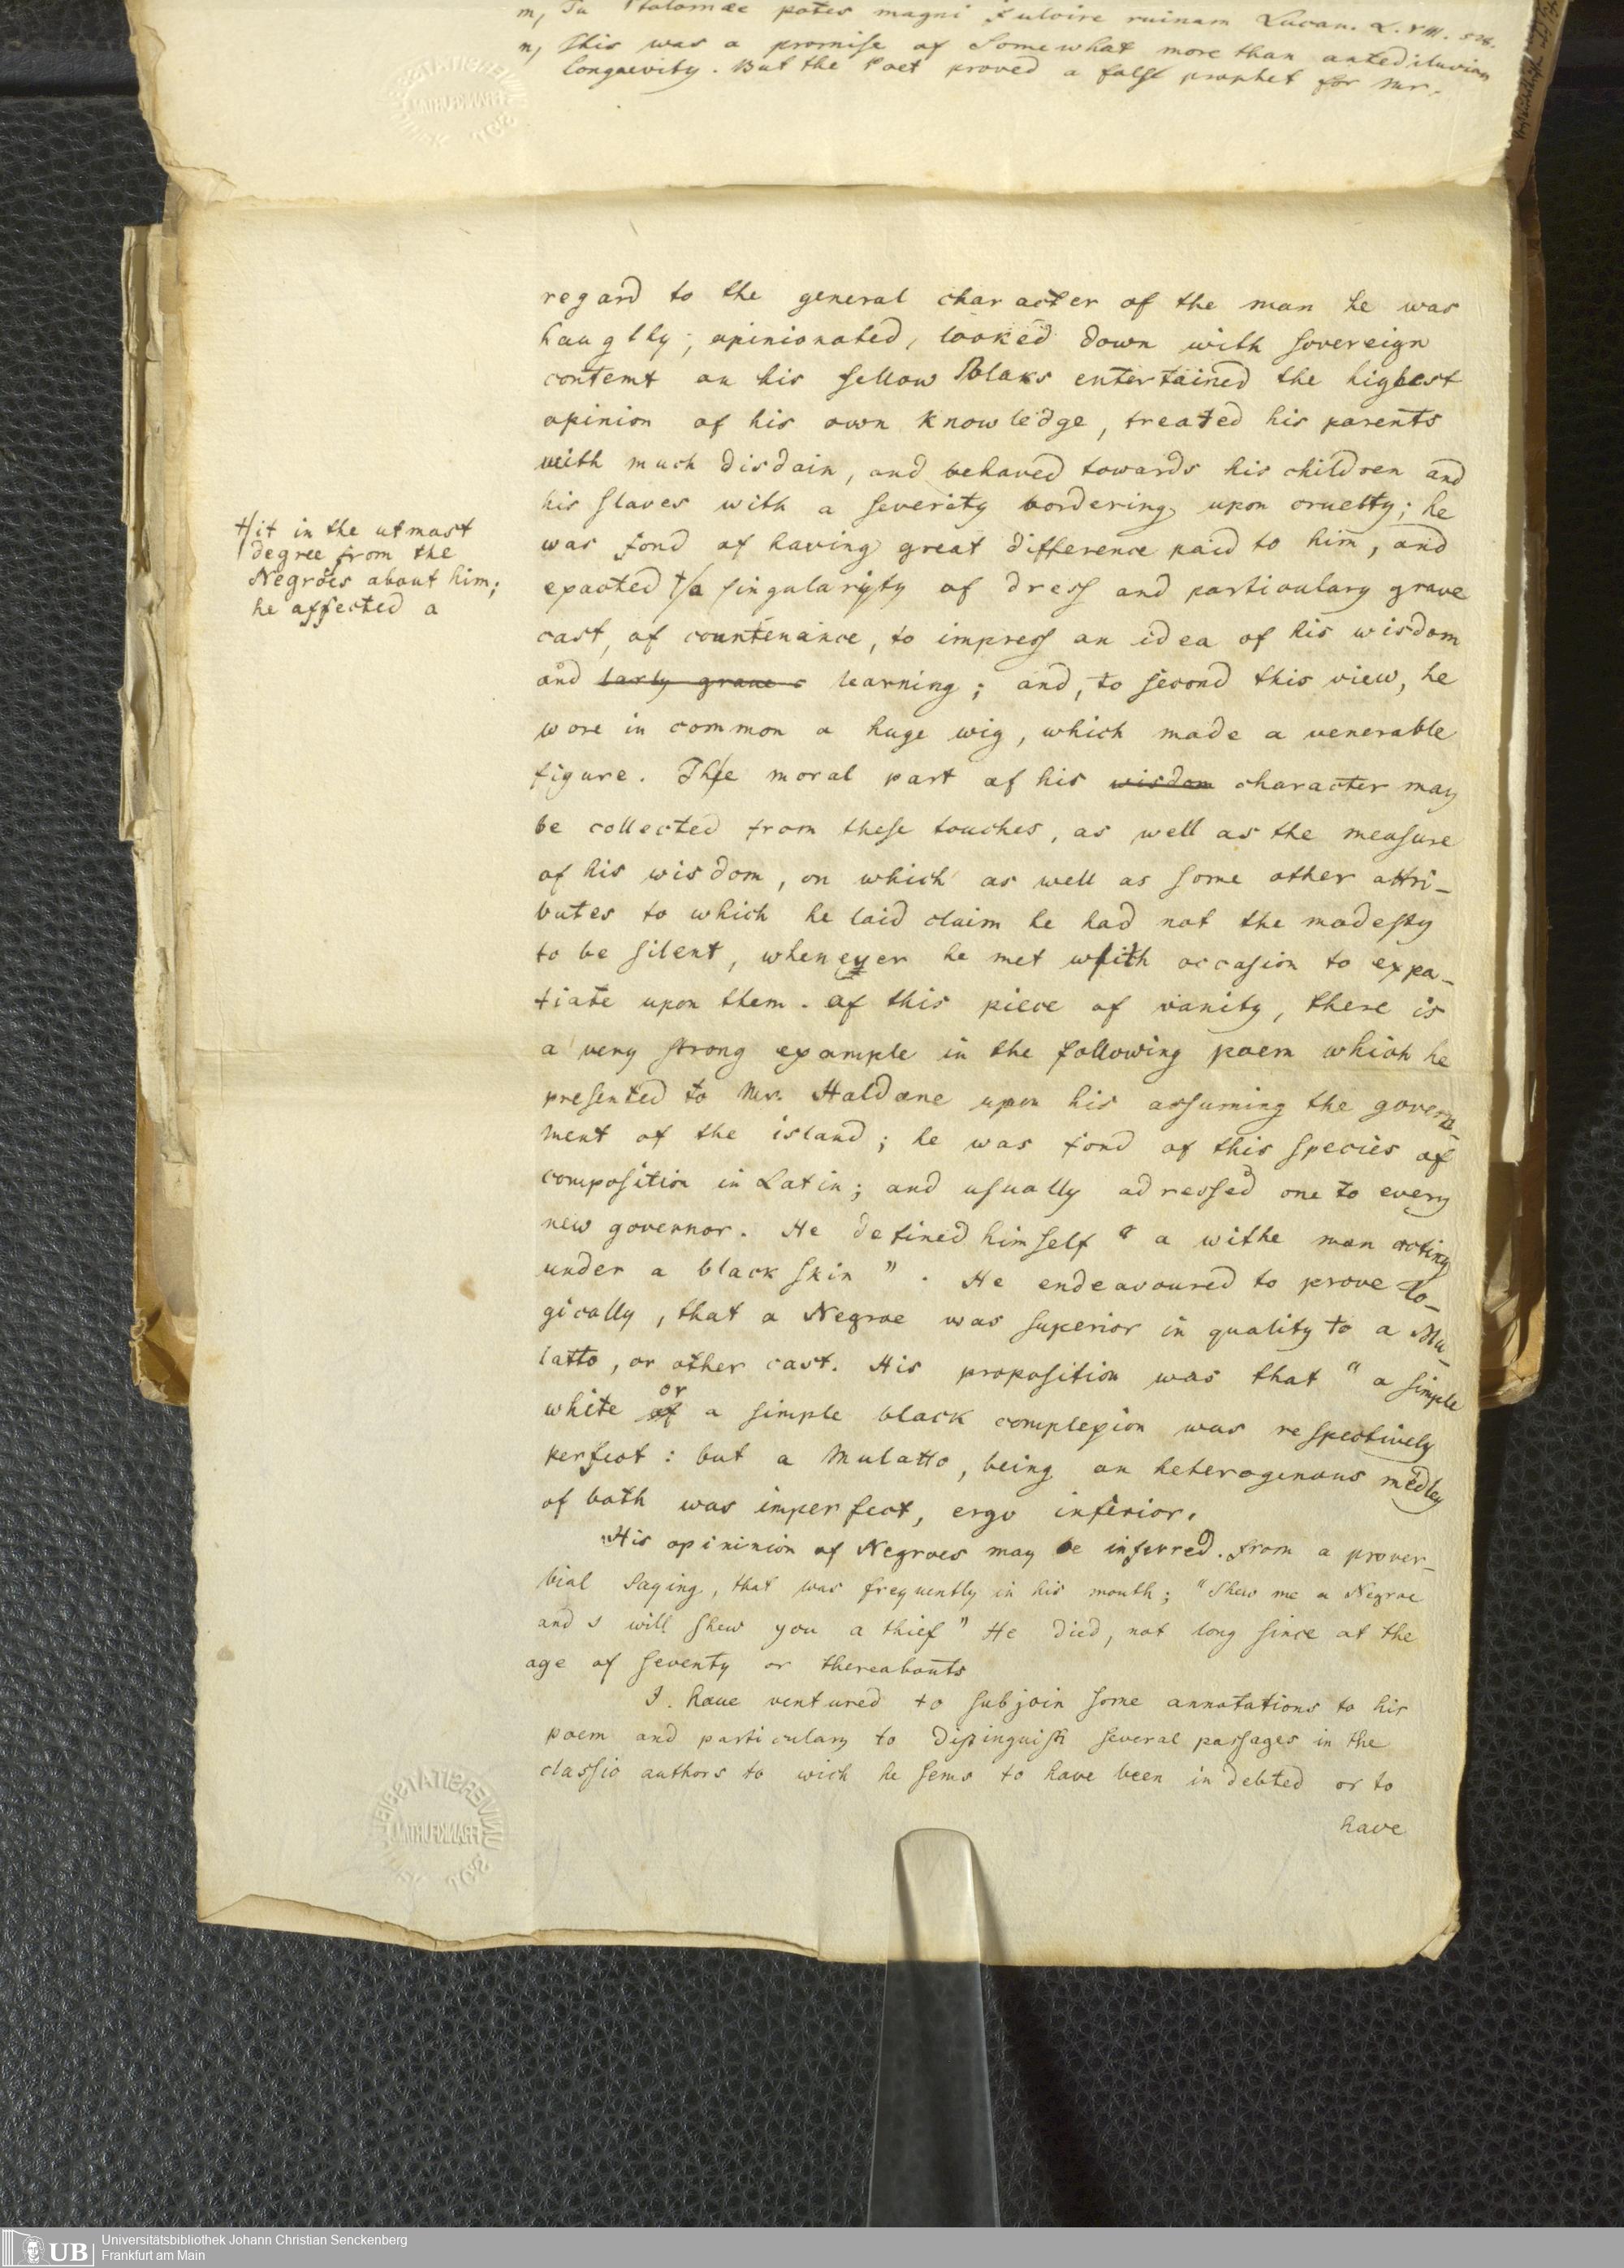 m, Tu Ptolomæ potes magni fulcire ruinam Lucan. L. VIII. 528.
n, This was a promise of somewhat more than antediluvian
longuevity. But the Poet proved a false prophet for Mr.
regard to the general character of the man he was
haughty, opinionated, looked down with sovereign
contemt on his fellow Blaks entertained the highest
opinion of his own knowledge, treated his parents
with much disdain, and behaved towards his children and
his slaves with a severity bordering upon cruelty; he
was fond of having great difference paid to him, and
exacted +/a singularity of dress and particulary grave
+/it in the utmost
degree from the
Negroes about him;
he affected a
cast, of countenance, to impress an idea of his wisdom
and larly grave c learning; and, to second this view, he
wore in common a huge wig, which made a venerable
figure. The moral part of his wisdom character may
be collected from these touches, as well as the measure
of his wisdom, on which as well as some other attri-
butes to which he laid claim he had not the modesty
to be silent, whenever he met with occasion to expa-
tiate upon them. of this piece of vanity, there is
a very strong example in the following poem which he
presented to Mr. Haldane upon his assuming the govern-
ment of the island; he was fond of this species of
composition in Latin; and usually adressed one to every
new governor. He defined himself "a withe man acting
under a black skin". He endeavoured to prove lo-
gically, that a Negroe was superior in quality to a Mu-
latto, or other cast. His proposition was that "a simple
white of or a simple black complexion was respectively
perfect: but a Mulatto, being an heterogenous medley
of both was imperfect, ergo inferior.
"His opininion of Negroes may be inferred. from a prover-
bial saying, that was frequently in his mouth; "Shew me a Negroe
and I will shew you a thief" He died, not long since at the
age of seventy or thereabouts
I. have ventured to subjoin some annotations to his
poem and particulary to distinguish several passages in the
classic authors to wich he sems to have been indebted or to
have
UB
Universitätsbibliothek Johann Christian Senckenberg
Frankfurt am Main